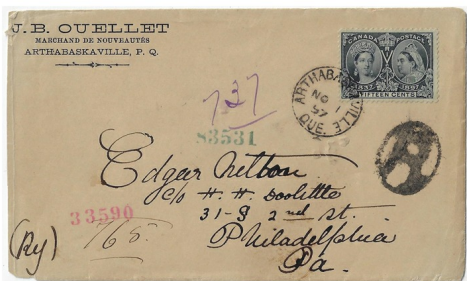 J.B. OUELLET
MARCHAND DE NOUVEAUTÉS
ARTHABASKAVILLE, P. Q.
CANADA POSTAGE
1837 1897
FIFTEEN CENTS
ARTHABASKAVILLE
NO 1
97
QUE.
737
83531
R
Edgar Nelton
c/o H. H. Doolittle
31-S 2nd St.
Philadelphia
Pa.
33590
765.
(Ry)